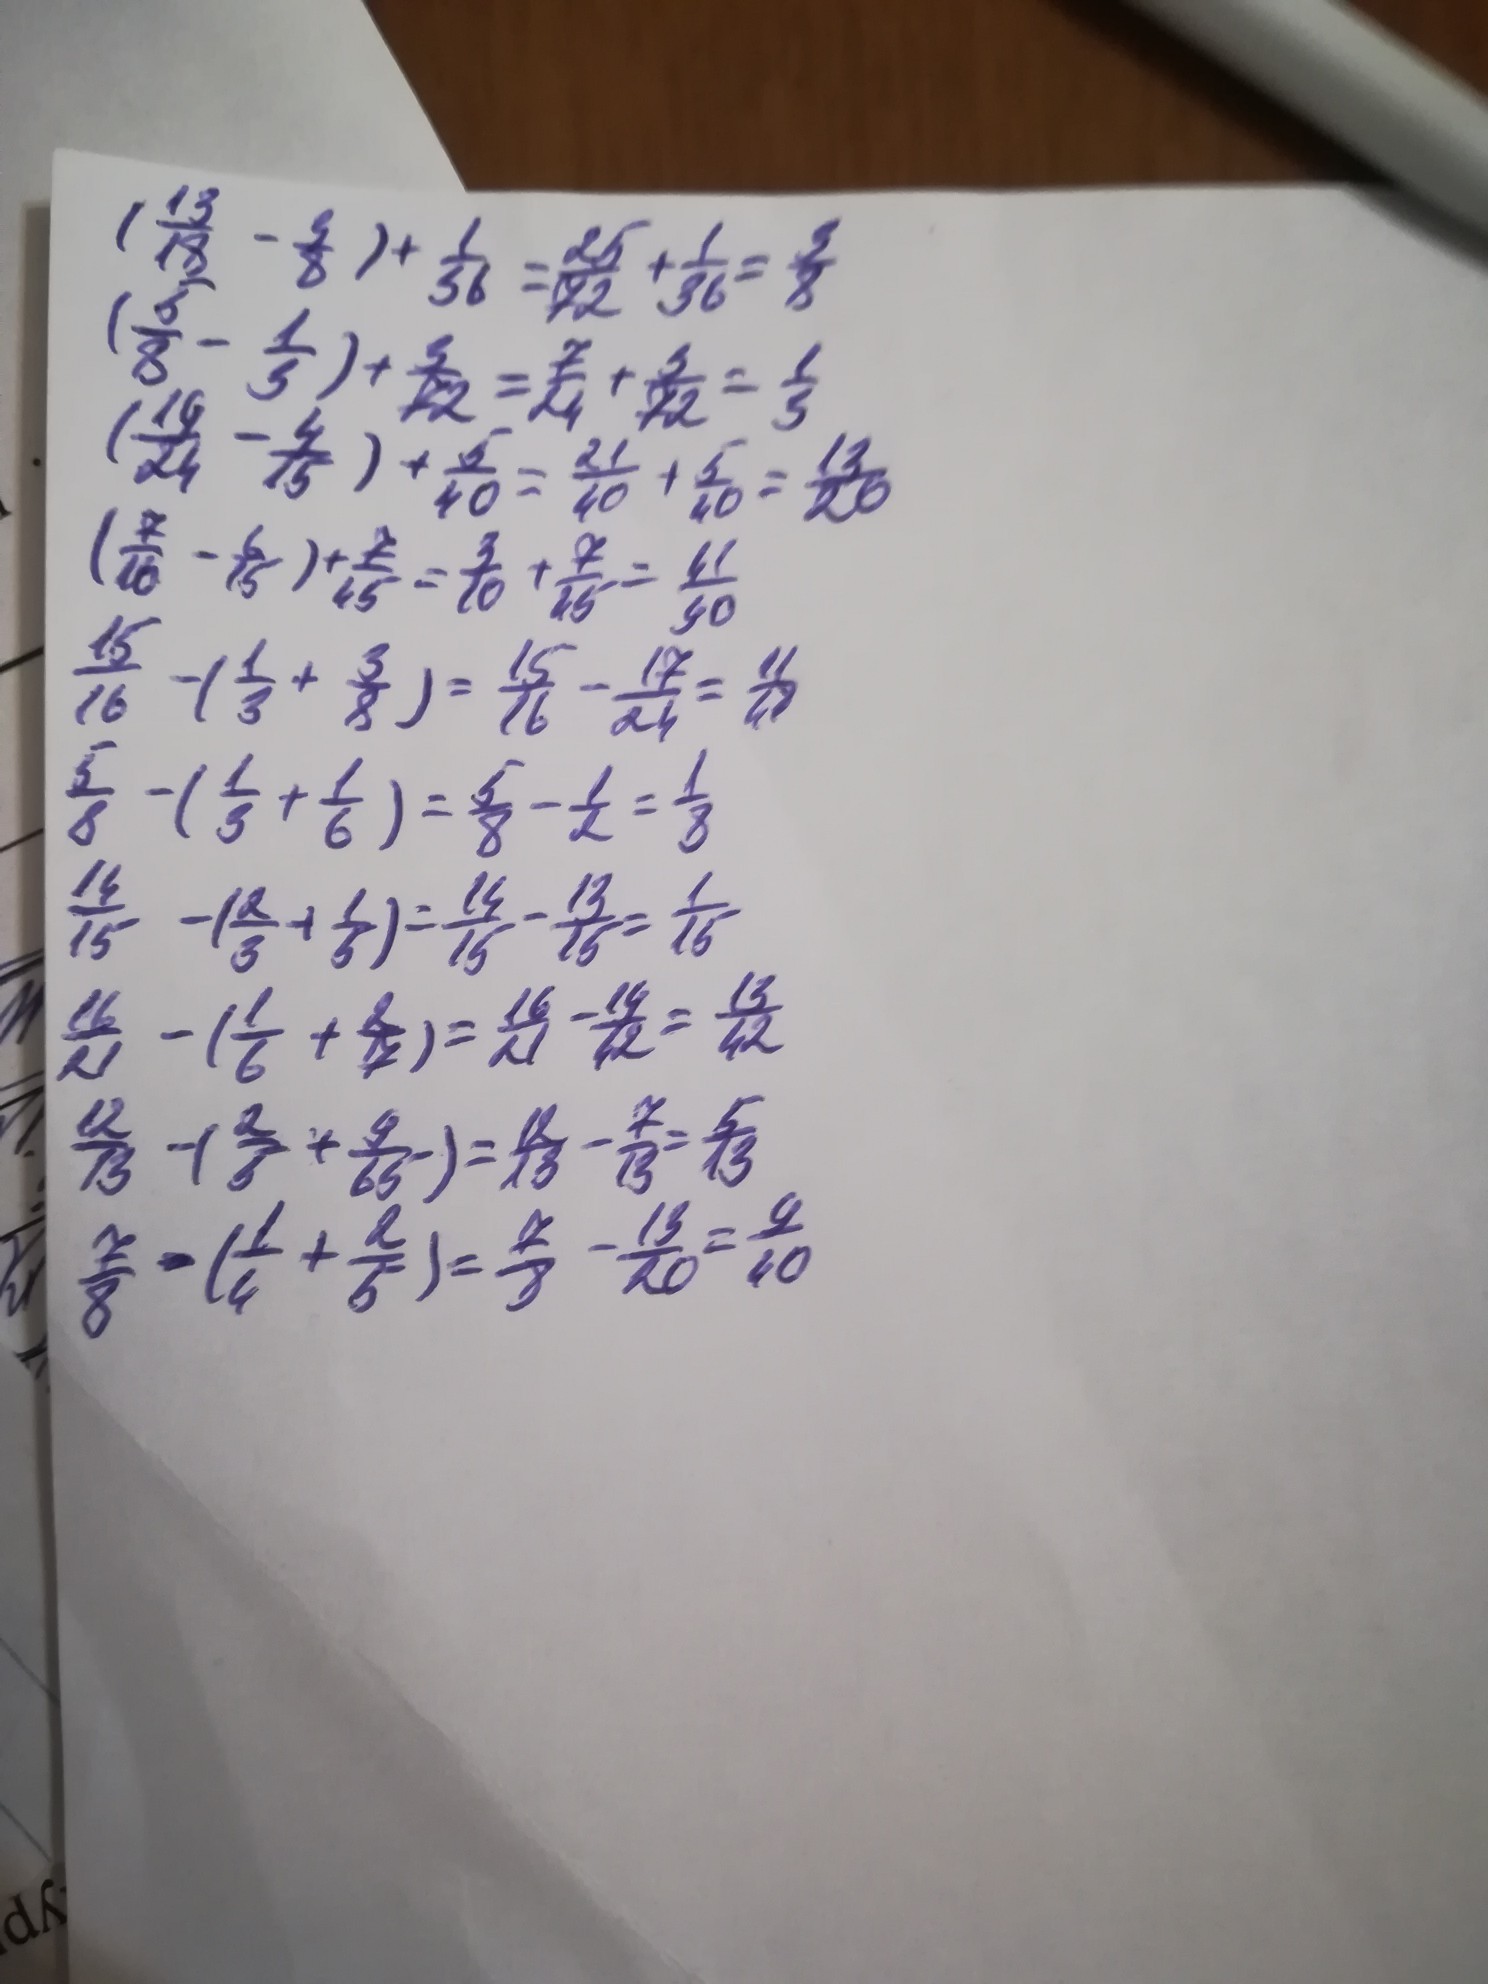 (13/18 - 3/8) + 1/36 = 25/72 + 1/36 = 3/8
(5/8 - 1/3) + 3/72 = 7/24 + 3/72 = 1/3
(19/24 - 4/15) + 5/40 = 21/40 + 5/40 = 13/20
(7/10 - 6/15) + 7/45 = 3/10 + 7/45 = 41/90
15/16 - (1/3 + 3/8) = 15/16 - 17/24 = 11/48
5/8 - (1/3 + 1/6) = 5/8 - 1/2 = 1/8
14/15 - (2/3 + 1/5) = 14/15 - 13/15 = 1/15
16/21 - (1/6 + 2/7) = 16/21 - 19/42 = 13/42
12/13 - (2/5 + 9/65) = 12/13 - 7/13 = 5/13
7/8 - (1/4 + 2/5) = 7/8 - 13/20 = 9/40